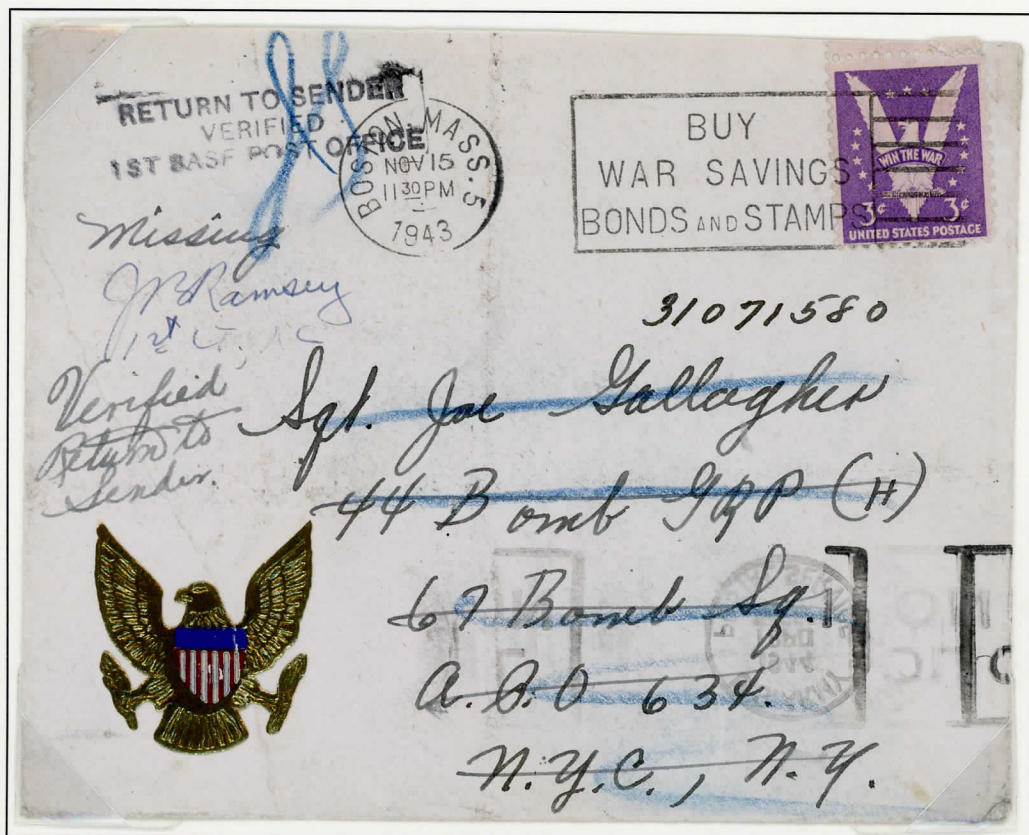 RETURN TO SENDER
VERIFIED
1ST BASE POST OFFICE
BOSTON, MASS. 5
NOV 15
11 30 PM
1943
BUY
WAR SAVINGS
BONDS AND STAMPS
WIN THE WAR
3¢ 3¢
UNITED STATES POSTAGE
Missing
JB Ramsey
1st Lt, AC
Verified
Return to
Sender.
31071580
Sgt. Joe Gallagher
44 Bomb GRP (H)
67 Bomb Sq.
A.P.O 634.
N.Y.C., N.Y.